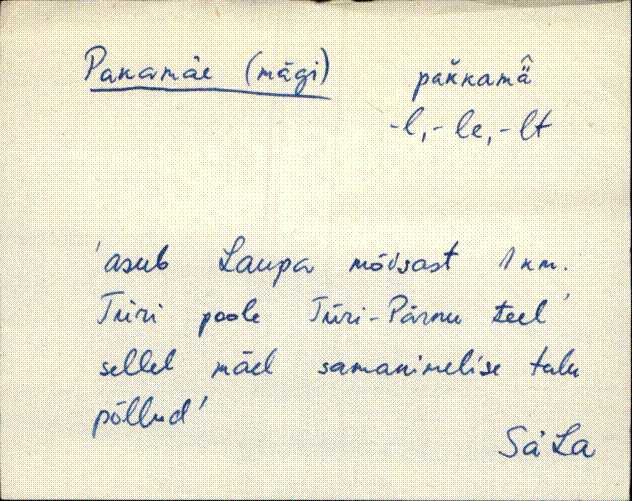 Pakamäe (mägi) pak̆kamä̂
-l, -le, -lt
'asub Laupa mõisast 1 km.
Türi poole Türi-Pärnu teel'
sellel mäel samanimelise talu
põllud'
Sä' La